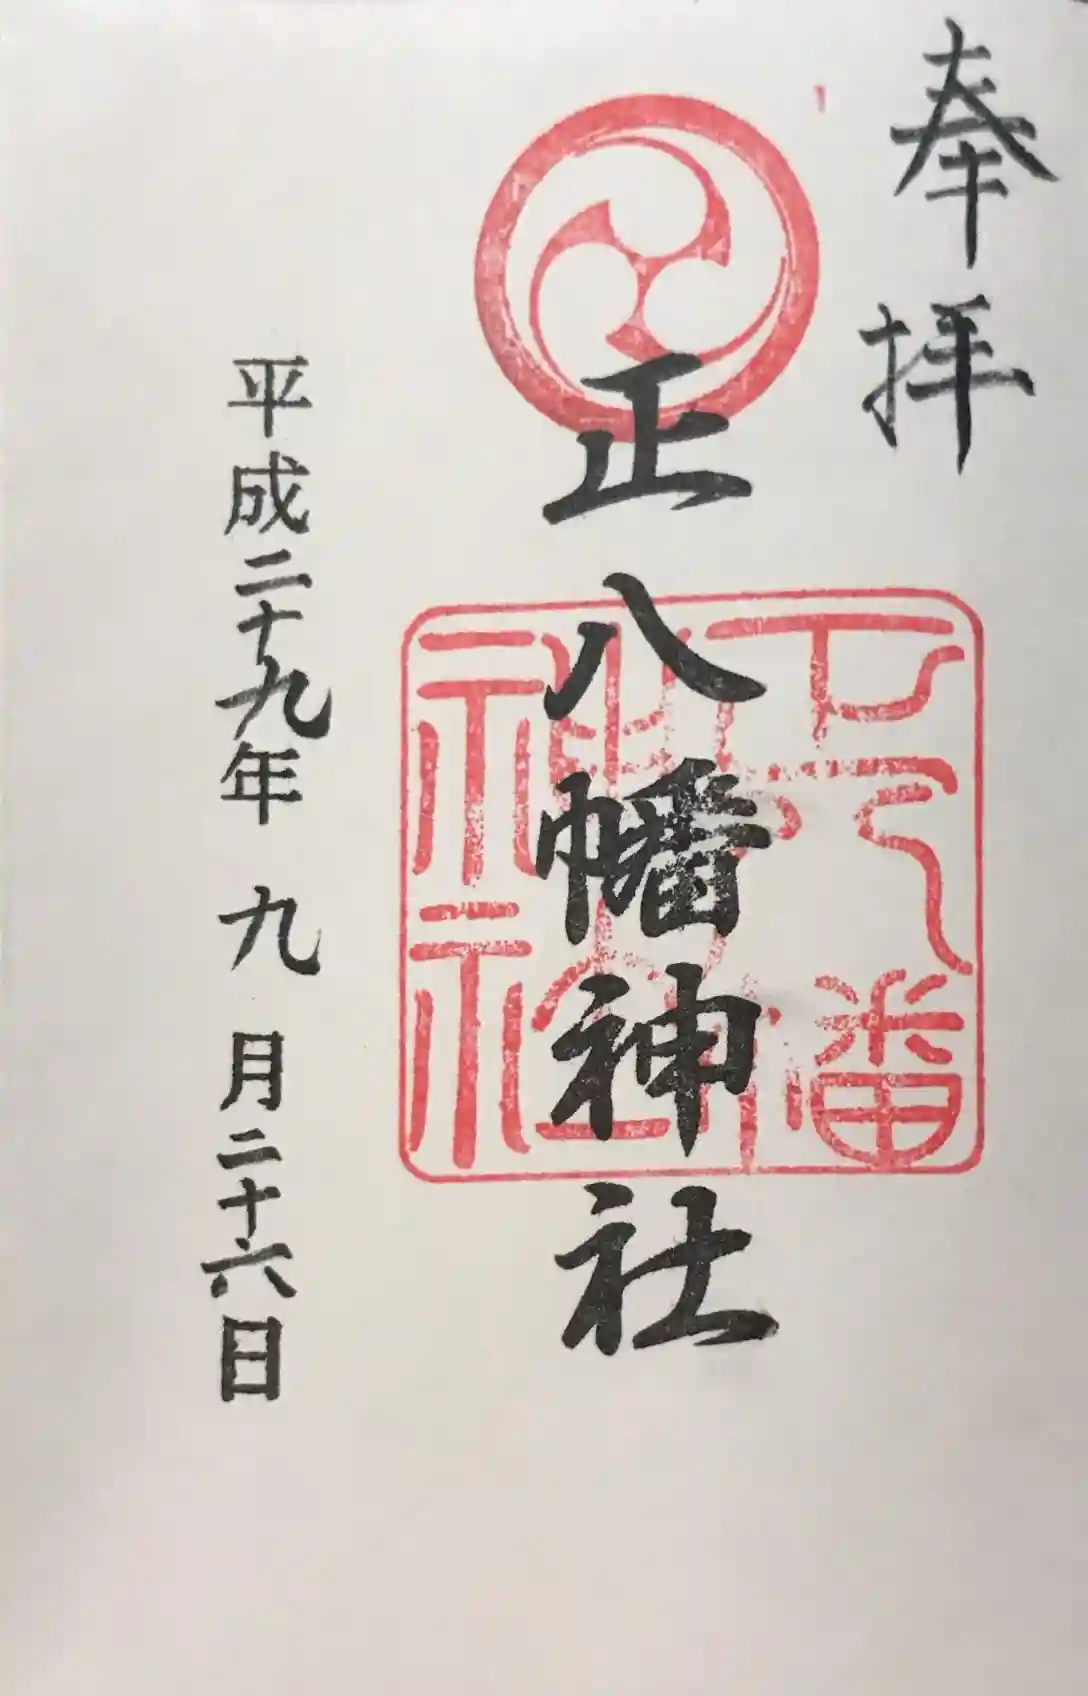 奉拝
正八幡神社
平成二十九年 九月二十六日